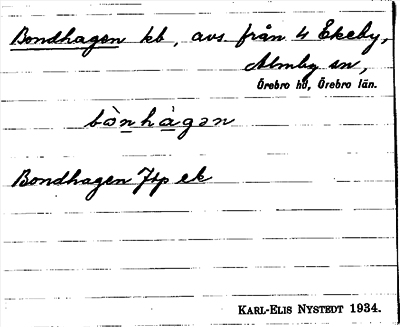 Bondhagen kb, avs. från 4 Ekeby,
Almby sn,
Örebro hd, Örebro län.
bònhágən
Bondhagen Jtp ek
KARL-ELIS NYSTEDT 1934.